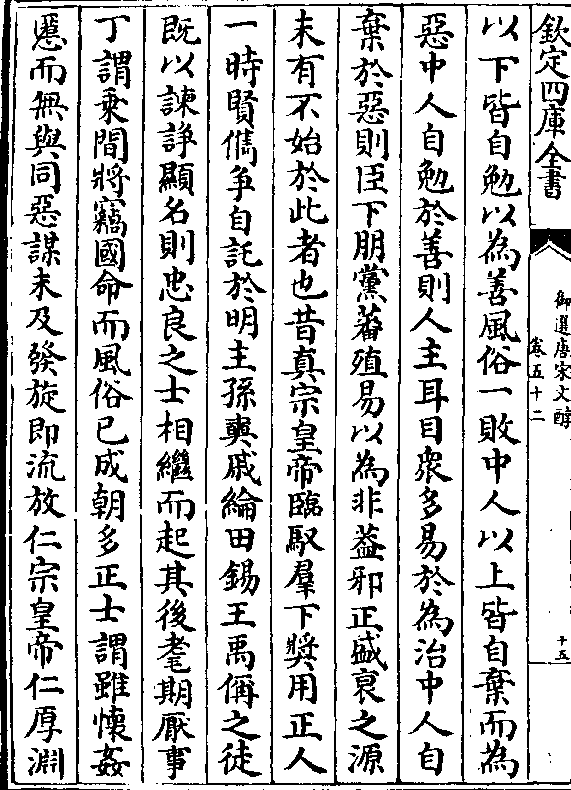 欽定四庫全書
御選唐宋文醇
卷五十二
十五
以下皆自勉以為善風俗一敗中人以上皆自棄而為
惡中人自勉於善則人主耳目衆多易於為治中人自
棄於惡則臣下朋黨蕃殖易以為非葢邪正盛衰之源
未有不始於此者也昔真宗皇帝臨馭羣下奬用正人
一時賢儁争自託於明主孫奭戚綸田錫王禹偁之徒
既以諫諍顯名則忠良之士相繼而起其後耄期厭事
丁謂乗間將竊國命而風俗已成朝多正士謂雖懷姦
慝而無與同惡謀未及發旋即流放仁宗皇帝仁厚淵